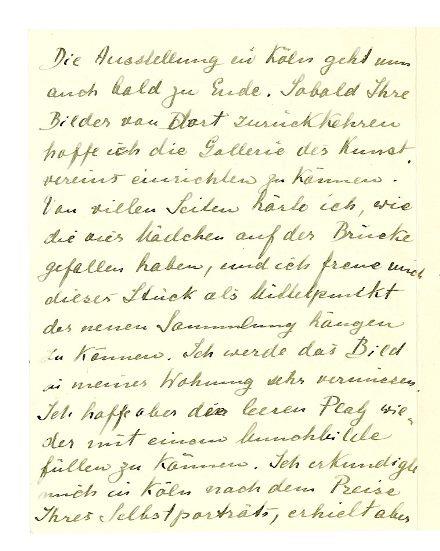 Die Ausstellung in Köln geht nun
auch bald zu Ende. Sobald Ihre
Bilder von Dort zurückkehren
hoffe ich die Gallerie des Kunst
vereins einrichten zu können.
Von villen Seiten hörte ich, wie
die vier Mädchen auf der Brücke
gefallen haben, und ich freue mich
dieses Stück als Mittelpunkt
der neuen Sammlung hängen
zu können. Ich werde das Bild
in meiner Wohnung sehr vermissen.
Ich hoffe aber den leeren Platz wie-
der mit einem Munchbilde
füllen zu können. Ich erkundigte
mich in Köln nach dem Preise
Ihres Selbstporträts, erhielt aber